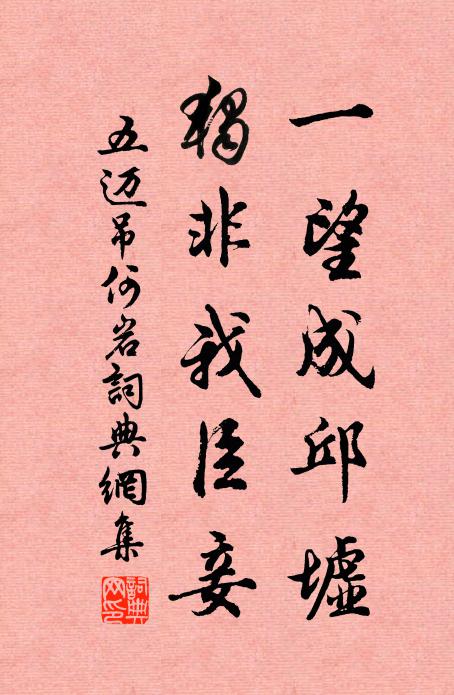 一望成邱墟
獨非我臣妾
五迈吊何岩詞典網集
詞典網印